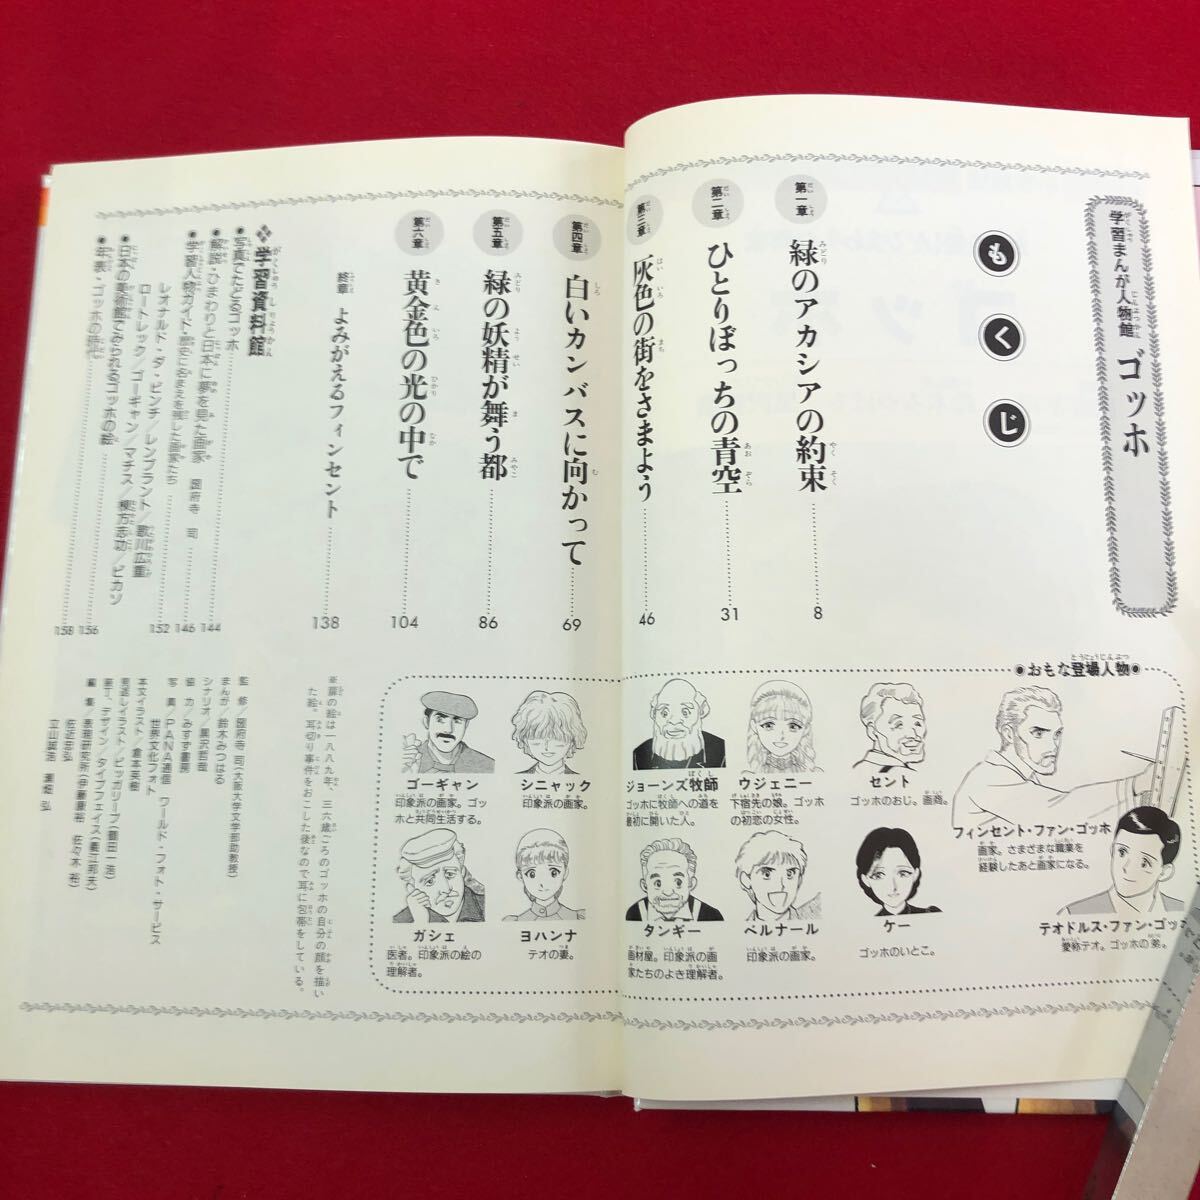 学習まんが人物館 ゴッホ
もくじ
第一章 緑のアカシアの約束 8
第二章 ひとりぼっちの青空 31
第三章 灰色の街をさまよう 46
第四章 白いカンバスに向かって 69
第五章 緑の妖精が舞う都 86
第六章 黄金色の光の中で 104
終章 よみがえるフィンセント 138
学習資料館
●写真でたどるゴッホ 144
●解説・ひまわりと日本に夢を見た画家 圀府寺 司 146
●学習人物ガイド・歴史に名まえを残した画家たち 152
レオナルド・ダ・ビンチ/レンブラント/歌川広重
ロートレック/ゴーギャン/マチス/棟方志功/ピカソ
●日本の美術館でみられるゴッホの絵 156
●年表・ゴッホの時代 158
●おもな登場人物●
フィンセント・ファン・ゴッホ
画家。さまざまな職業を
経験したあと画家になる。
テオドルス・ファン・ゴッホ
愛称テオ。ゴッホの弟。
セント
ゴッホのおじ。画商。
ケー
ゴッホのいとこ。
ウジェニー
下宿先の娘。ゴッホ
の初恋の女性。
ベルナール
印象派の画家。
ジョーンズ牧師
ゴッホに牧師への道を
最初に開いた人。
タンギー
画材屋。印象派の画
家たちのよき理解者。
シニャック
印象派の画家。
ヨハンナ
テオの妻。
ゴーギャン
印象派の画家。ゴッ
ホと共同生活する。
ガシェ
医者。印象派の絵の
理解者。
※扉の絵は一八八九年、三六歳ごろのゴッホの自分の顔を描い
た絵。耳切り事件をおこした後なので耳に包帯をしている。
監修/圀府寺 司(大阪大学文学部助教授)
まんが/鈴木みつはる
シナリオ/黒沢哲哉
協力/みすず書房
写真/PANA通信 ワールド・フォト・サービス
世界文化フォト
本文イラスト/倉本英樹
見返しイラスト/ビッグリーブ(鶴田一浩)
装丁、デザイン/タイプフェイス(義江邦夫)
編集/表現研究所(伊藤康裕 佐々木 裕)
佐近忠弘
立山誠浩 瀬畑 弘